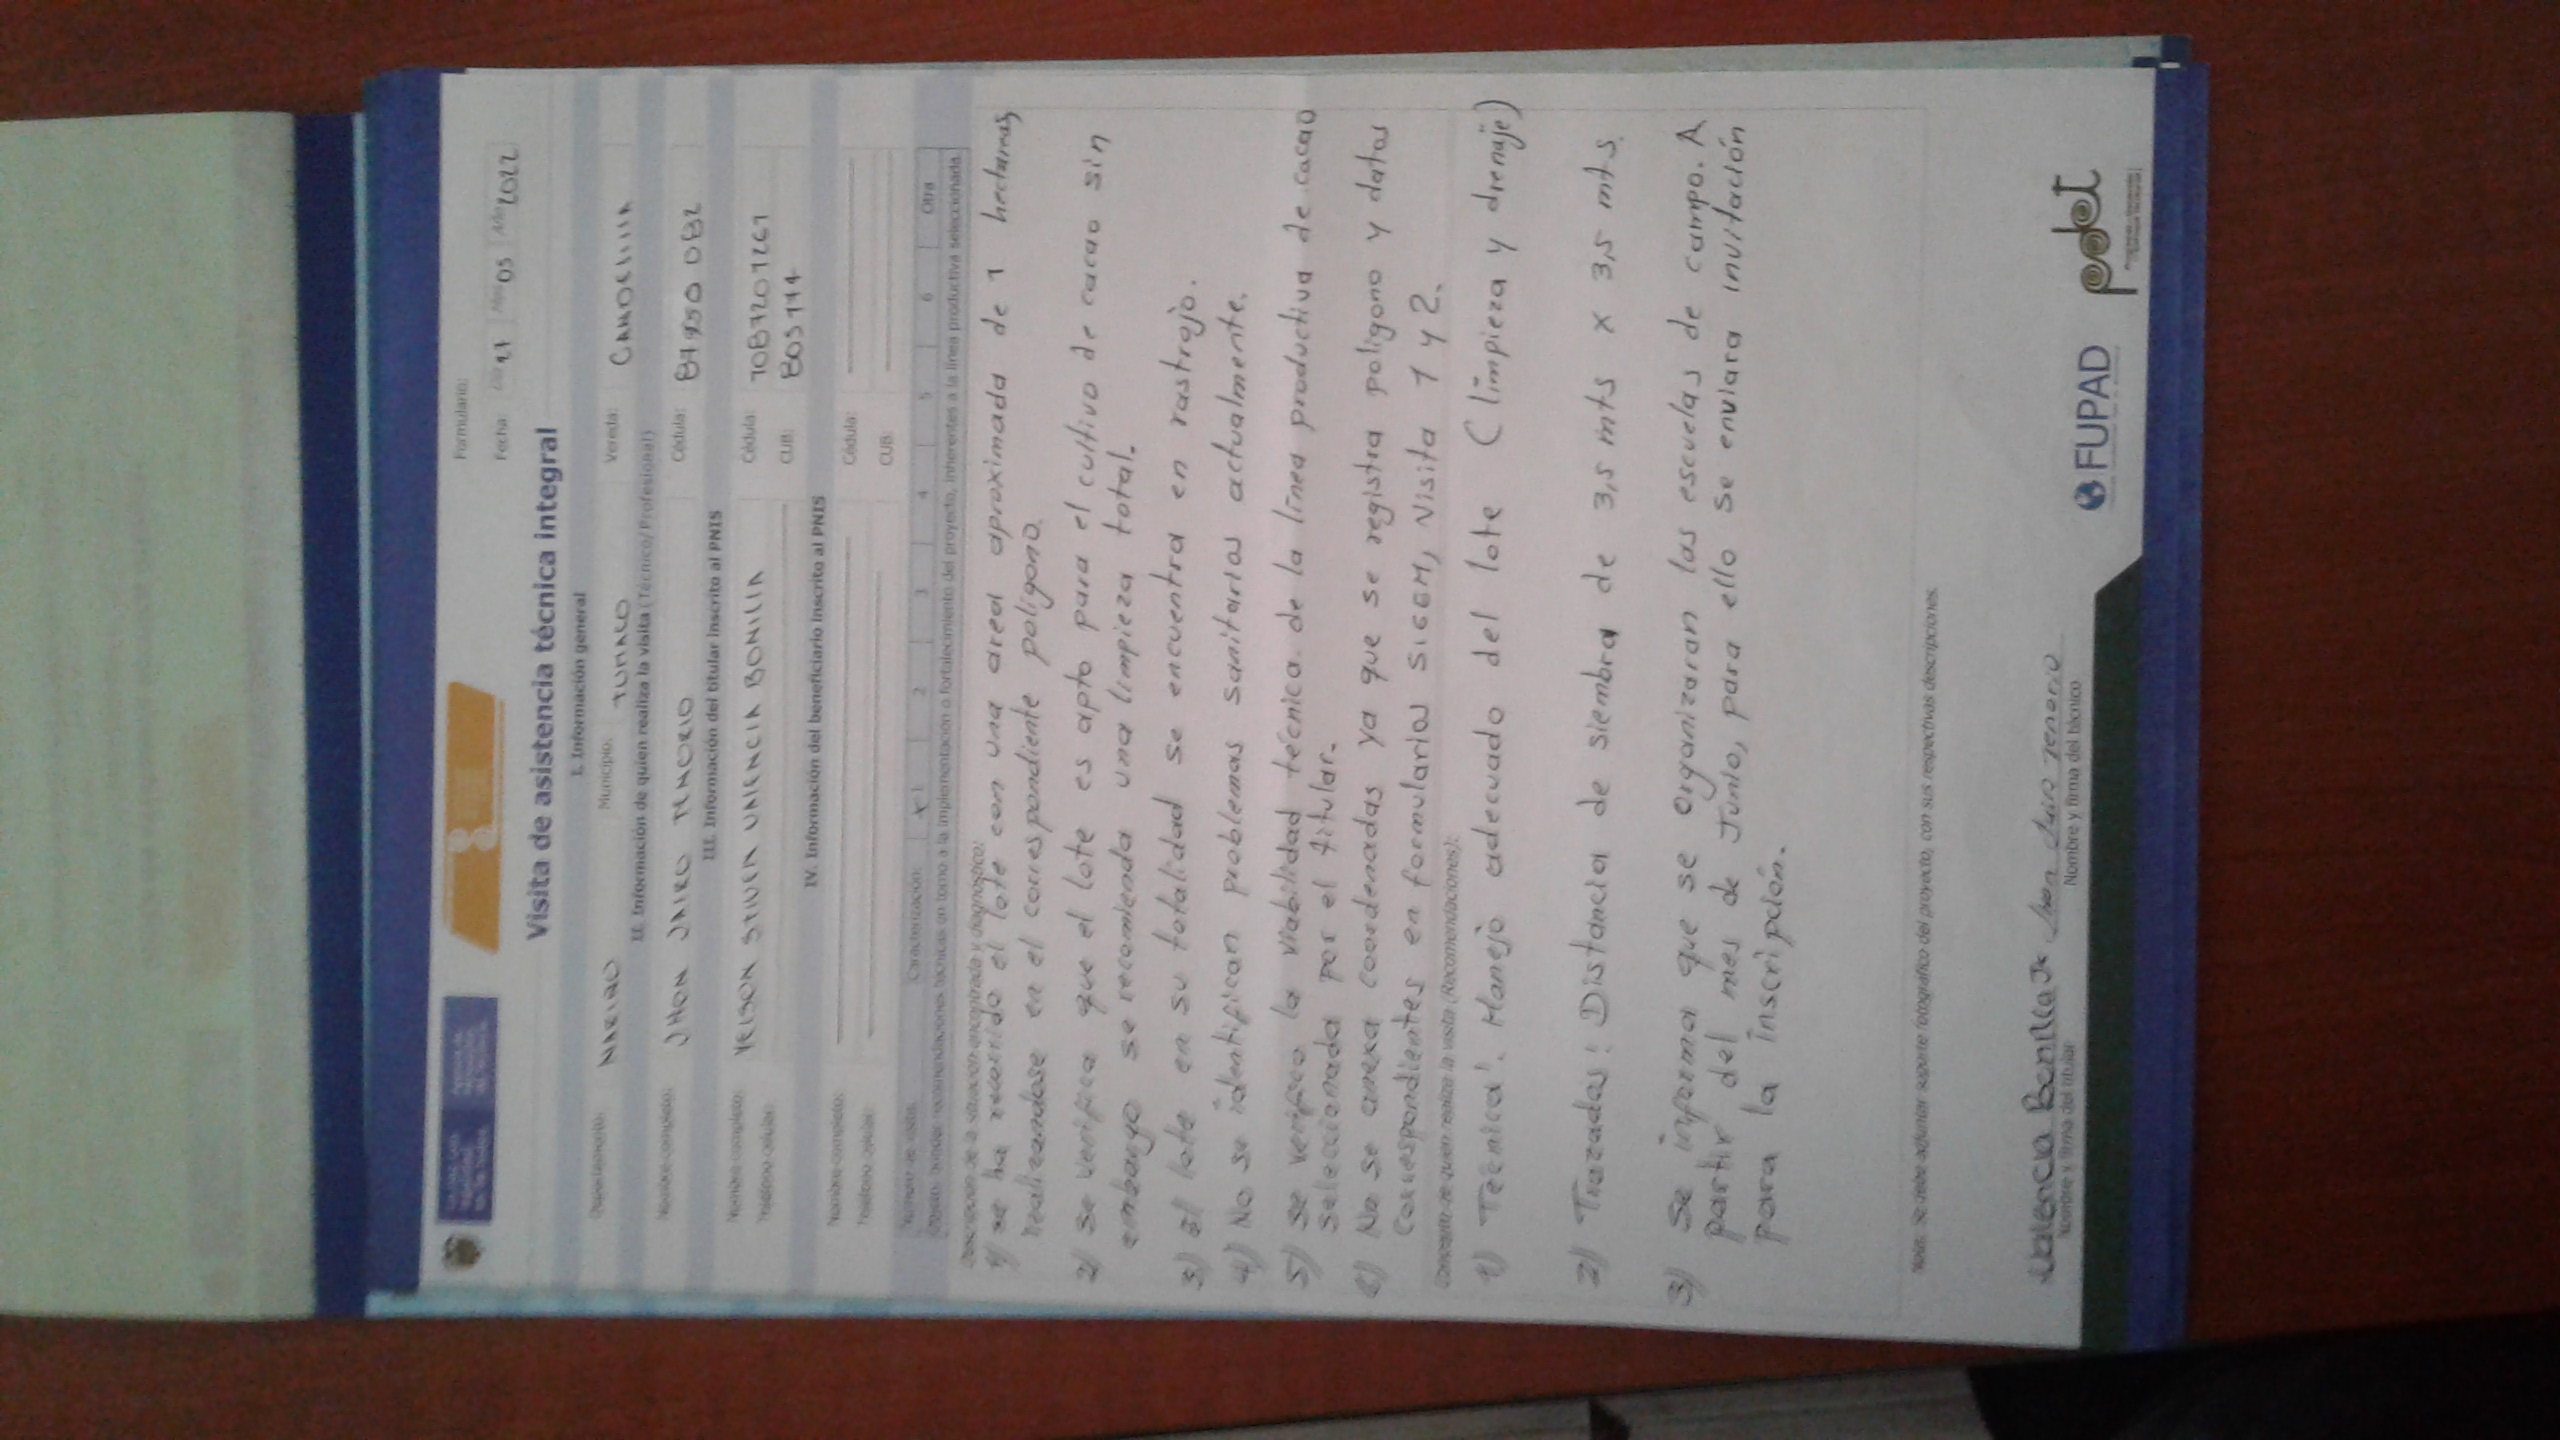 Formulario:
Fecha: Día 21 Mes 05 Año 2022
Visita de asistencia técnica integral
I. Información general
Departamento: NARIÑO Municipio: TUMACO Vereda:
II. Información de quien realiza la visita (Técnico/Profesional)
Nombre completo: JHON JAIRO TENORIO Cédula:
III. Información del titular inscrito al PNIS
Nombre completo: YEISON STIVEN VALENCIA BONILLA Cédula: 1087201261
Teléfono celular: CUB:
IV. Información del beneficiario inscrito al PNIS
Nombre completo: Cédula:
Teléfono celular: CUB:
Número de visita: Caracterización: X 1 2 3 4 5 6 Otra
recomendaciones técnicas en torno a la implementación o fortalecimiento del proyecto, inherentes a la línea productiva seleccionada.
Descripción de la situación encontrada y diagnóstico:
1) se ha recorrido el lote con una area aproximada de 1 hectareas
realizandose en el correspondiente poligono.
2) Se verifica que el lote es apto para el cultivo de cacao sin
embargo se recomienda una limpieza total.
3) El lote en su totalidad se encuentra en rastrojo.
4) No se identifican problemas sanitarios actualmente.
5) se verifico la viabilidad técnica de la línea productiva de cacao
seleccionada por el titular.
6) No se anexa coordenadas ya que se registra poligono y datos
Correspondientes en formularios SIGEM, Visita 1 y 2.
Concepto de quien realiza la visita (Recomendaciones):
1) Técnica: Manejo adecuado del lote (limpieza y drenaje)
2) Trazados: Distancia de siembra de 3,5 mts x 3,5 mts.
3) Se informa que se organizaran las escuelas de campo. A
partir del mes de Junio, para ello se enviara invitación
para la inscripción.
Nota: Se debe adjuntar soporte fotográfico del proyecto, con sus respectivas descripciones.
Valencia Bonilla Jhon Jairo Tenorio
Nombre y firma del titular Nombre y firma del técnico
FUPAD pdet